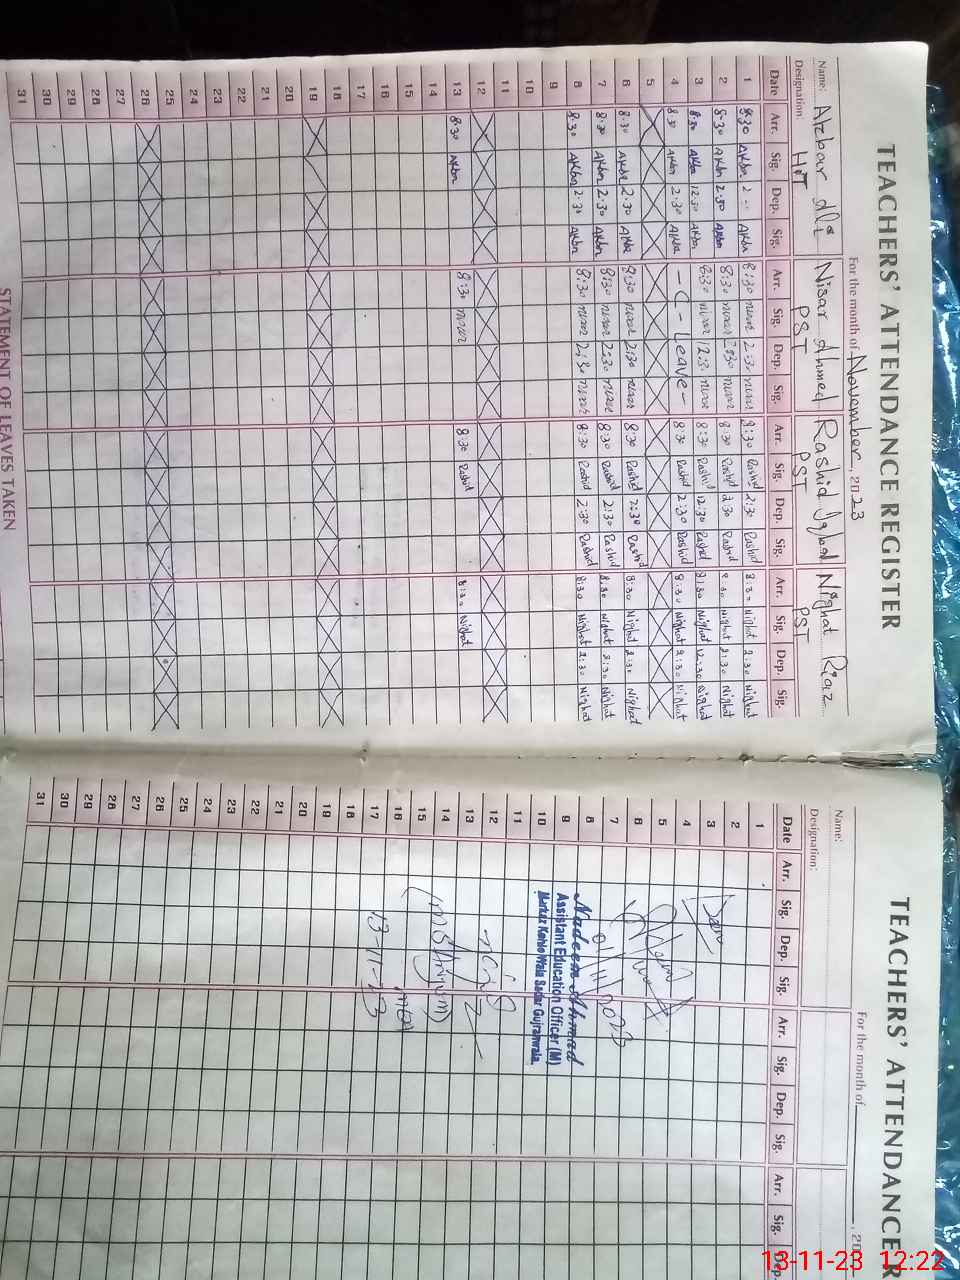 TEACHERS' ATTENDANCE REGISTER
For the month of November, 2023
Name: Akbar Ali Nisar Ahmed Rashid Iqbal Nighat Riaz
Designation: H.T PST PST PST
Date Arr. Sig. Dep. Sig. Arr. Sig. Dep. Sig. Arr. Sig. Dep. Sig. Arr. Sig. Dep. Sig.
1 8:30 Akbar 8:30 nisar 2:30 nisar 8:30 Rashid 2:30 Rashid 8:30 Nighat 2:30 Nighat
2 8:30 Akbar 2:30 Akbar 8:30 nisar 2:30 nisar 8:30 Rashid 2:30 Rashid 8:30 Nighat 2:30 Nighat
3 8:30 Akbar 12:30 Akbar 8:30 nisar 12:30 nisar 8:30 Rashid 12:30 Rashid 8:30 Nighat 12:30 Nighat
4 8:30 Akbar 2:30 Akbar - C - Leave - 8:30 Rashid 2:30 Rashid 8:30 Nighat 2:30 Nighat
5
6 8:30 Akbar 2:30 Akbar 8:30 nisar 2:30 nisar 8:30 Rashid 2:30 Rashid 8:30 Nighat 2:30 Nighat
7 8:30 Akbar 2:30 Akbar 8:30 nisar 2:30 nisar 8:30 Rashid 2:30 Rashid 8:30 Nighat 2:30 Nighat
8 8:30 Akbar 2:30 Akbar 8:30 nisar 2:30 nisar 8:30 Rashid 2:30 Rashid 8:30 Nighat 2:30 Nighat
9
10
11
12
13 8:30 Akbar 8:30 nisar 8:30 Rashid 8:30 Nighat
14
15
16
17
18
19
20
21
22
23
24
25
26
27
28
29
30
31
STATEMENT OF LEAVES TAKEN
TEACHERS' ATTENDANCE R
For the month of , 20
Name:
Designation:
Date Arr. Sig. Dep. Sig. Arr. Sig. Dep. Sig. Arr. Sig. Dep.
1
2
3
4
5
6
7
8
9
10
11
12
13
14
15
16
17
18
19
20
21
22
23
24
25
26
27
28
29
30
31
Nadeem Ahmad
Assistant Education Officer (M)
Markaz Kohlo Wala Sadar Gujranwala
MEA
13-11-23
13-11-23 12:22